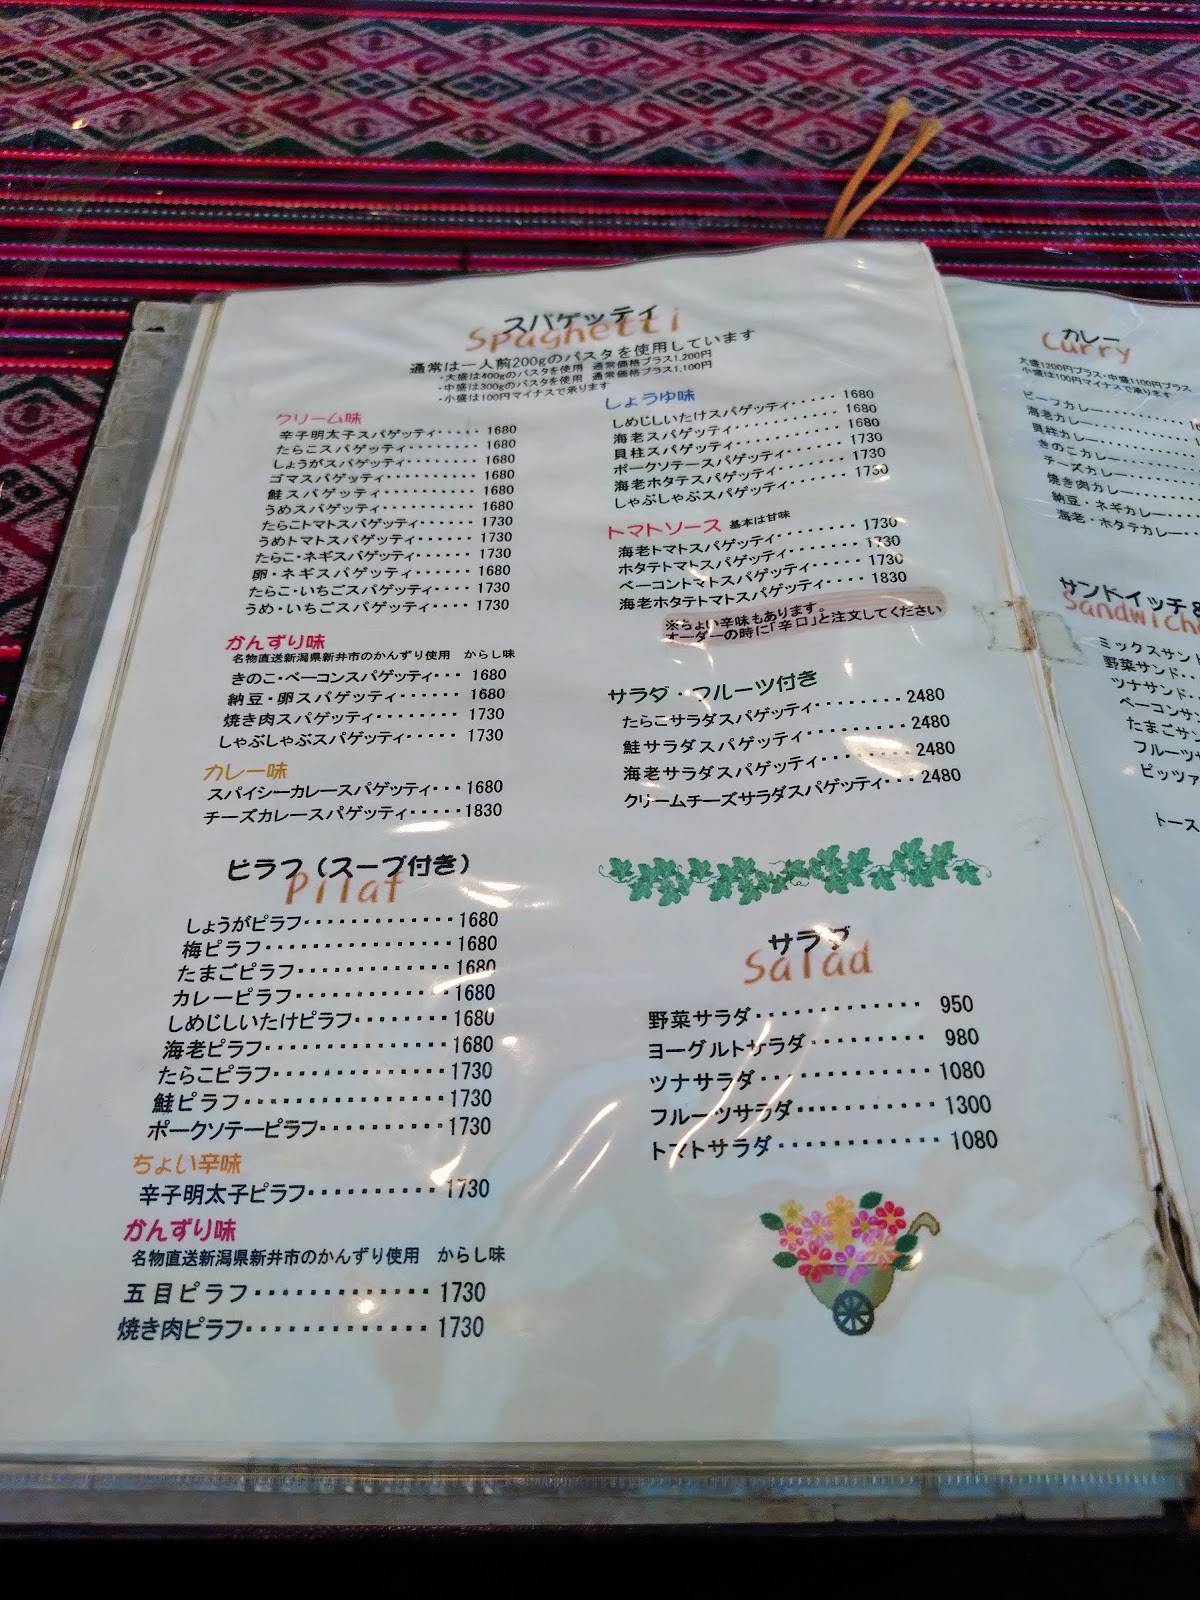 スパゲッティ
Spaghetti
通常は一人前200gのパスタを使用しています
・大盛は400gのパスタを使用 通常価格プラス1,200円
・中盛は300gのパスタを使用 通常価格プラス1,100円
・小盛は100円マイナスで承ります
クリーム味
辛子明太子スパゲッティ・・・・・ 1680
たらこスパゲッティ・・・・・・・・ 1680
しょうがスパゲッティ・・・・・・・ 1680
ゴマスパゲッティ・・・・・・・・・ 1680
鮭スパゲッティ・・・・・・・・・・ 1680
うめスパゲッティ・・・・・・・・・ 1680
たらこトマトスパゲッティ・・・・・ 1730
うめトマトスパゲッティ・・・・・・ 1730
たらこ・ネギスパゲッティ・・・・・ 1730
卵・ネギスパゲッティ・・・・・・ 1680
たらこ・いちごスパゲッティ・・・・ 1730
うめ・いちごスパゲッティ・・・・ 1730
かんずり味
名物直送新潟県新井市のかんずり使用 からし味
きのこ・ベーコンスパゲッティ・・・ 1680
納豆・卵スパゲッティ・・・・・・ 1680
焼き肉スパゲッティ・・・・・・・・ 1730
しゃぶしゃぶスパゲッティ・・・・・ 1730
カレー味
スパイシーカレースパゲッティ・・・1680
チーズカレースパゲッティ・・・・・1830
ピラフ（スープ付き）
Pilaf
しょうがピラフ・・・・・・・・・・・・・1680
梅ピラフ・・・・・・・・・・・・・・・・1680
たまごピラフ・・・・・・・・・・・・・1680
カレーピラフ・・・・・・・・・・・・・1680
しめじしいたけピラフ・・・・・・・・1680
海老ピラフ・・・・・・・・・・・・・・・1680
たらこピラフ・・・・・・・・・・・・・・1730
鮭ピラフ・・・・・・・・・・・・・・・・1730
ポークソテーピラフ・・・・・・・・・・1730
ちょい辛味
辛子明太子ピラフ・・・・・・・・・・1730
かんずり味
名物直送新潟県新井市のかんずり使用 からし味
五目ピラフ・・・・・・・・・・・・・1730
焼き肉ピラフ・・・・・・・・・・・・・1730
しょうゆ味
しめじしいたけスパゲッティ・・・・・ 1680
海老スパゲッティ・・・・・・・・・・ 1680
貝柱スパゲッティ・・・・・・・・・・ 1680
ポークソテースパゲッティ・・・・・・ 1730
海老ホタテスパゲッティ・・・・・・・ 1730
しゃぶしゃぶスパゲッティ・・・・・・ 1730
トマトソース 基本は甘味
海老トマトスパゲッティ・・・・・・・ 1730
ホタテトマトスパゲッティ・・・・・・ 1730
ベーコントマトスパゲッティ・・・・・ 1730
海老ホタテトマトスパゲッティ・・・・ 1830
※ちょい辛味もあります。
オーダーの時に「辛口」と注文してください
サラダ・フルーツ付き
たらこサラダスパゲッティ・・・・・・・・2480
鮭サラダスパゲッティ・・・・・・・・・・2480
海老サラダスパゲッティ・・・・・・・・・2480
クリームチーズサラダスパゲッティ・・・2480
サラダ
Salad
野菜サラダ・・・・・・・・・・・・・ 950
ヨーグルトサラダ・・・・・・・・・ 980
ツナサラダ・・・・・・・・・・・・・・1080
フルーツサラダ・・・・・・・・・・・1300
トマトサラダ・・・・・・・・・・・・・1080
カレー
Curry
大盛1200円プラス・中盛1100円プラス
小盛は100円マイナスで承ります
ビーフカレー・・・・・・・・
海老カレー・・・・・・・・・
貝柱カレー・・・・・・・・・
きのこカレー・・・・・・・・
チーズカレー・・・・・・・・
焼き肉カレー・・・・・・・・
納豆・ネギカレー・・・・
海老・ホタテカレー・・・
サンドイッチ&
Sandwich
ミックスサンド
野菜サンド・・
ツナサンド・・
ベーコンサン
たまごサン
フルーツサ
ピッツァ
トース